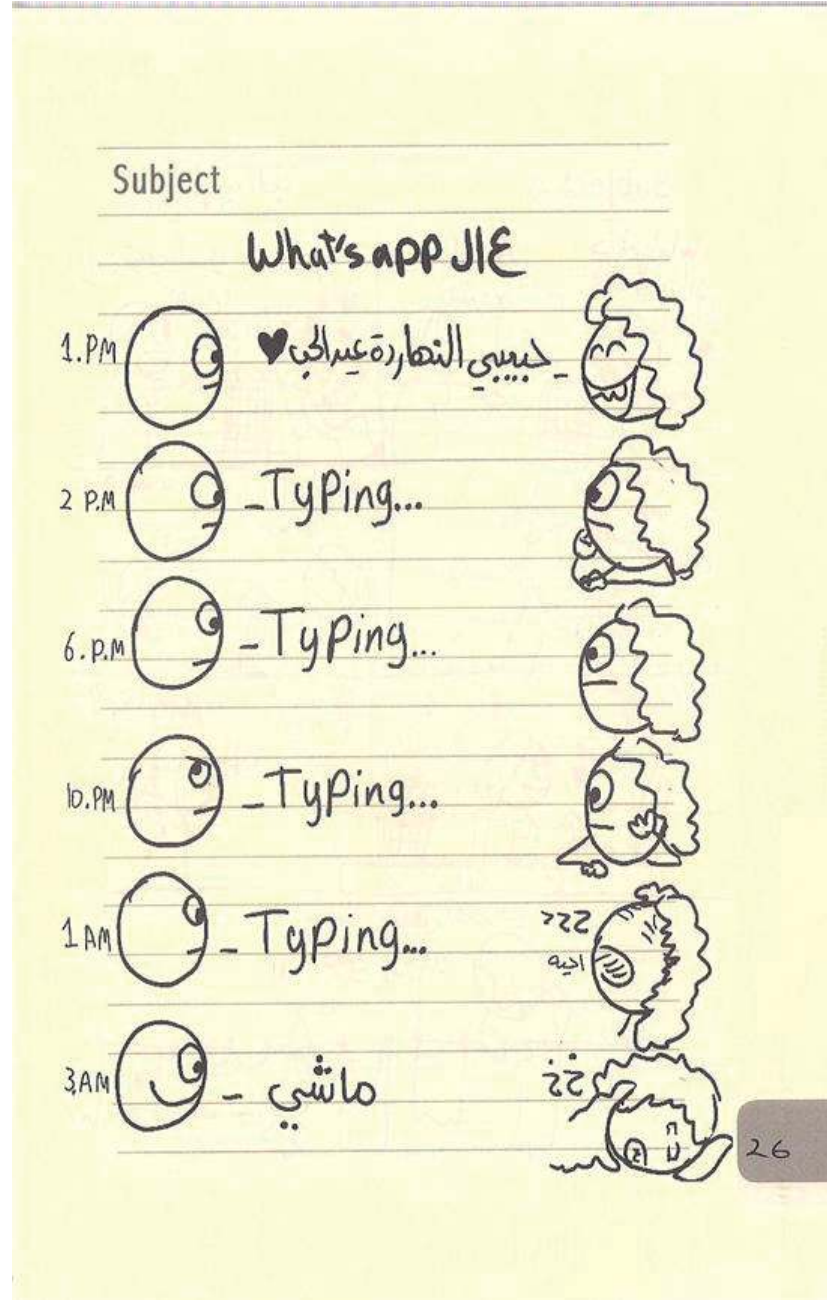 Subject
عال What's app
1.PM
حبيبي النهاردة عيد الحب ♥ _
2 P.M
_Typing...
6.P.M
_Typing...
10.PM
_Typing...
1 AM
_Typing...
zzz
احيه
3.AM
_ ماشي
خخ
26